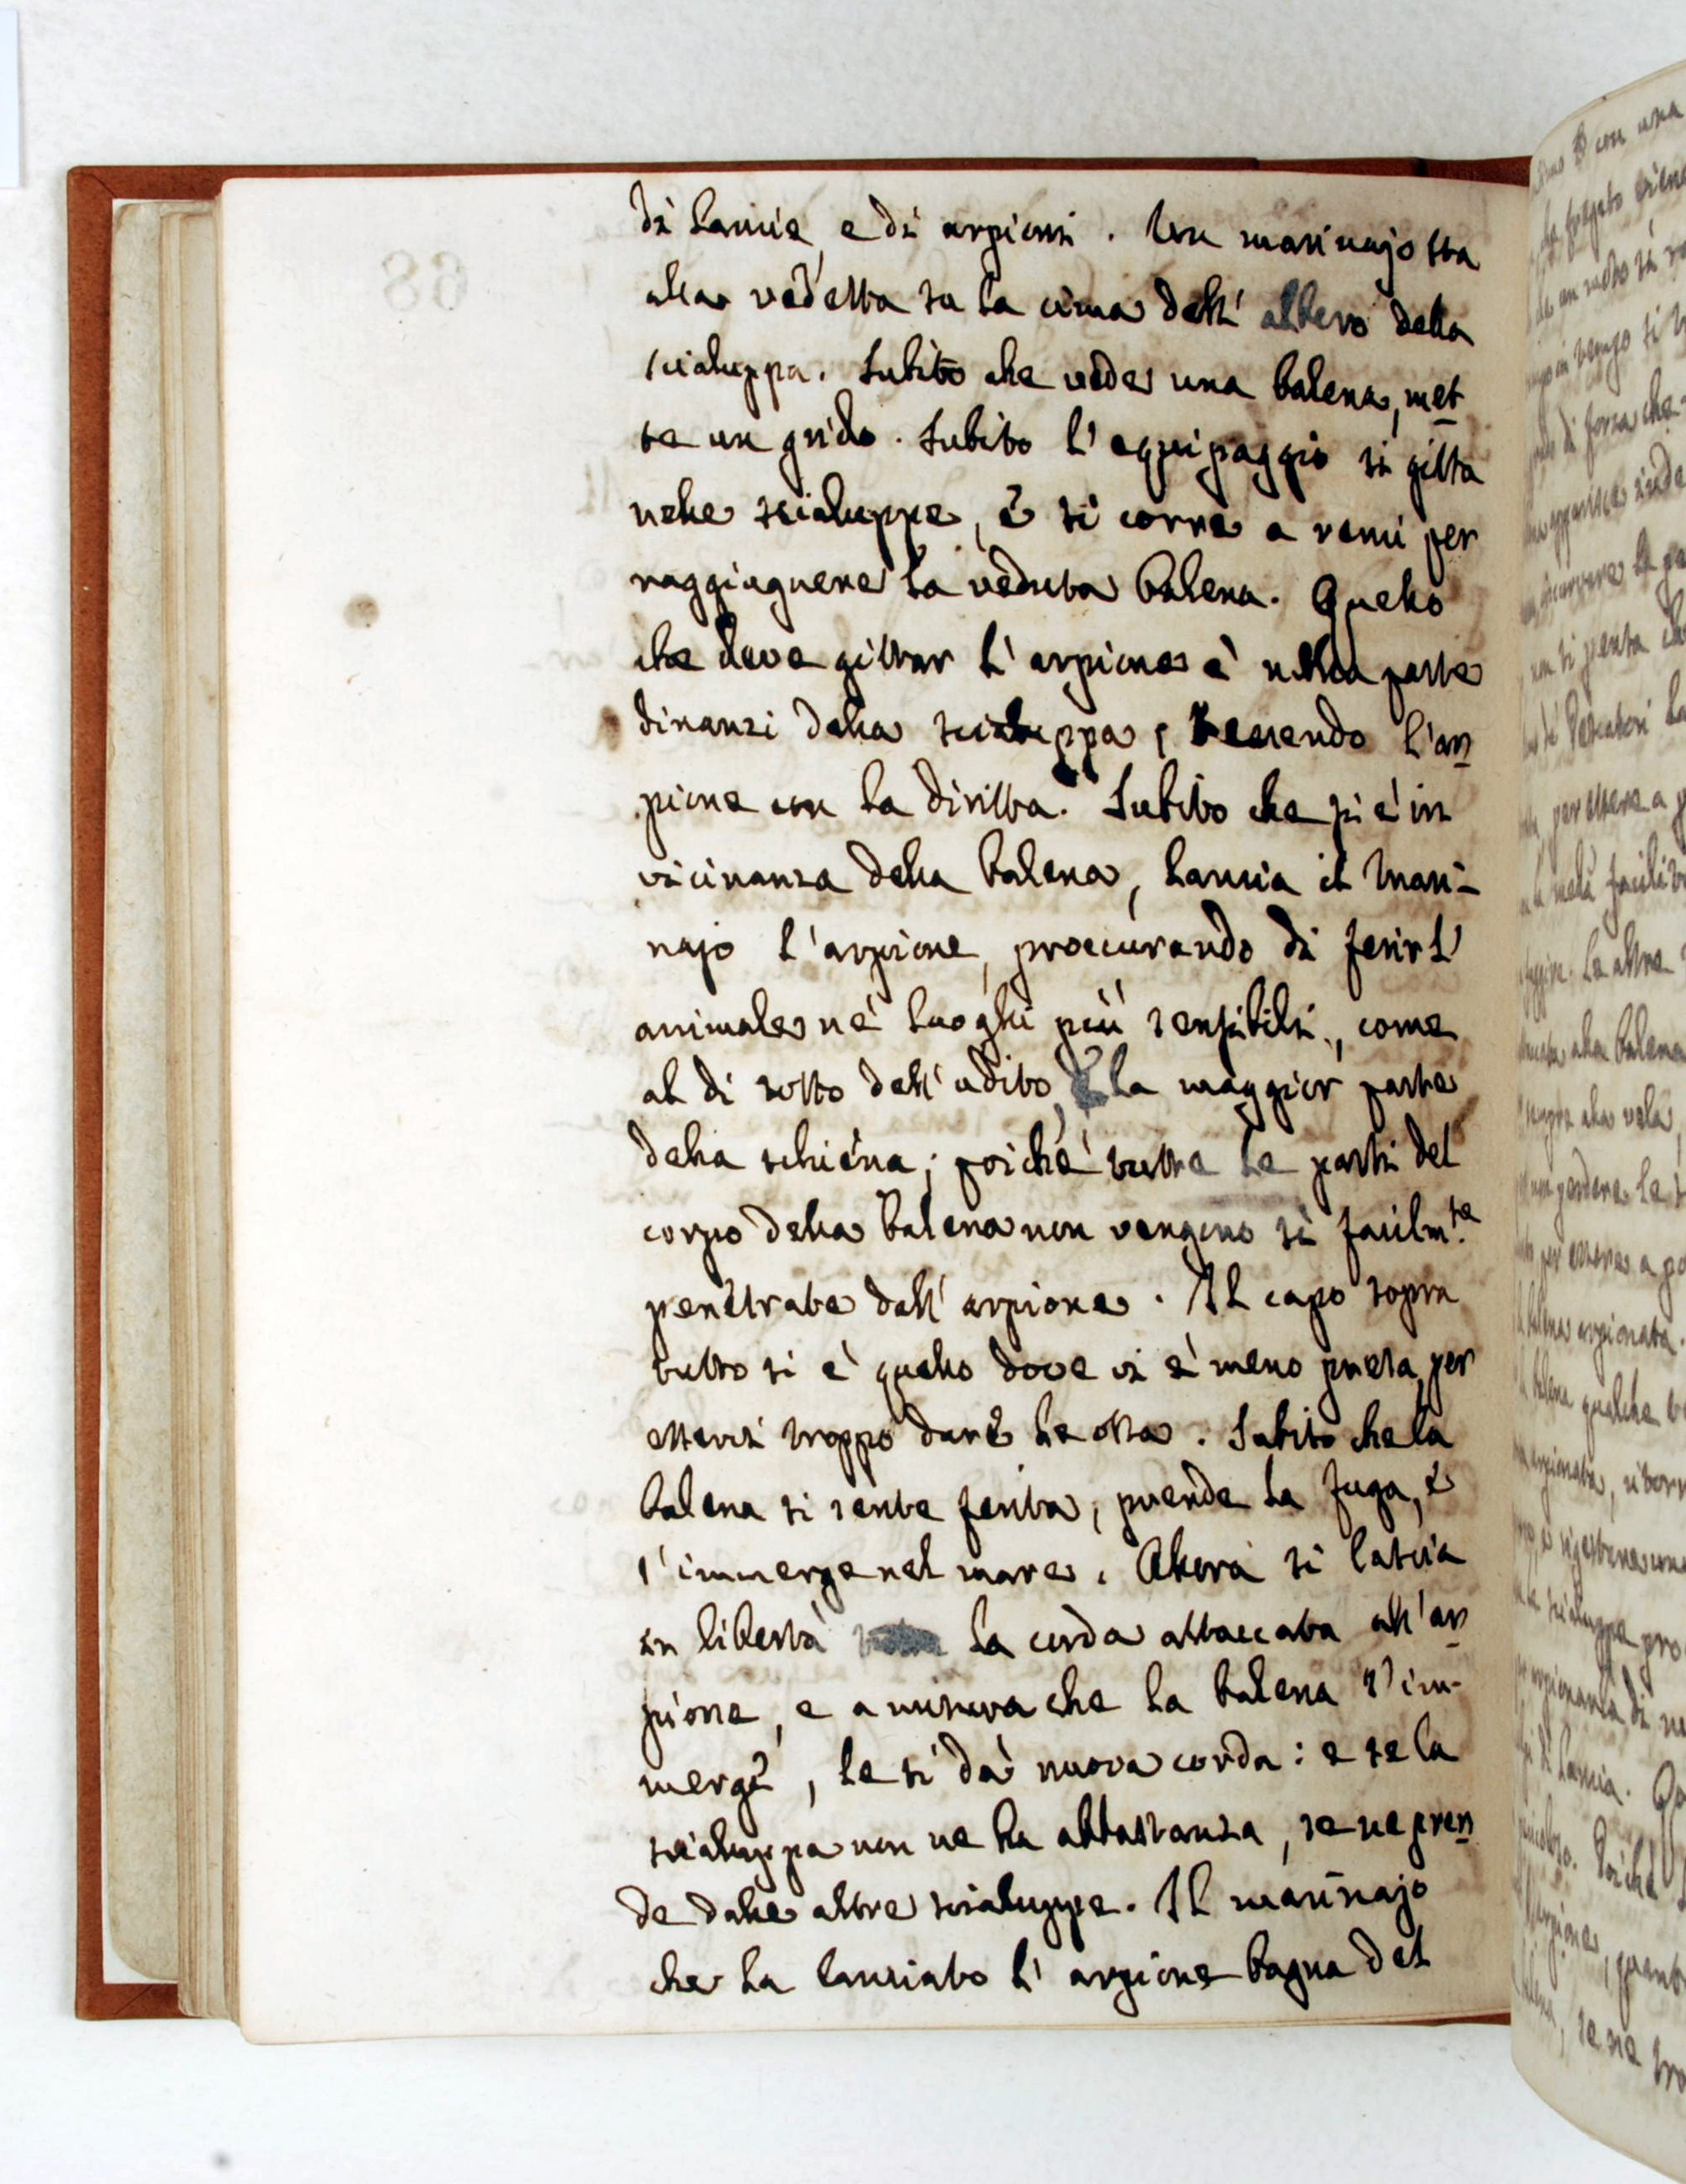 di lancie, e di arpioni. Un marinajo sta
alla vedetta su la cima dell' albero della
scialuppa. Subito che vede una balena, met
te un grido. Subito l'equipaggio si gitta
nelle scialuppe, e si corre a remi per
raggiugnere la veduta balena. Quello
che deve gittar l'arpione è nella parte
dinanzi della scialuppa, tenendo l'ar
pione con la diritta. Subito che si è in
vicinanza della balena, lancia il mari-
najo l'arpione, proccurando di ferir l'
animale ne' luoghi più sensibili, come
al di sotto dell' udito, e la maggior parte
della schiena; poichè tutte le parti del
corpo della balena non vengono sì facilm.te
penetrate dall' arpione. Il capo sopra
tutto si è quello dove vi è meno presa, per
esservi troppo dure le ossa. Subito che la
balena si sente ferita, prende la fuga, e
s'immerge nel mare. Allora si lascia
in libertà la corda attaccata all' ar
pione, e a misura che la balena s'im-
merge, le si dà nuova corda: e se la
scialuppa non ne ha abbastanza, se ne pren
de dalle altre scialuppe. Il marinajo
che ha lanciato l'arpione bagna del
68